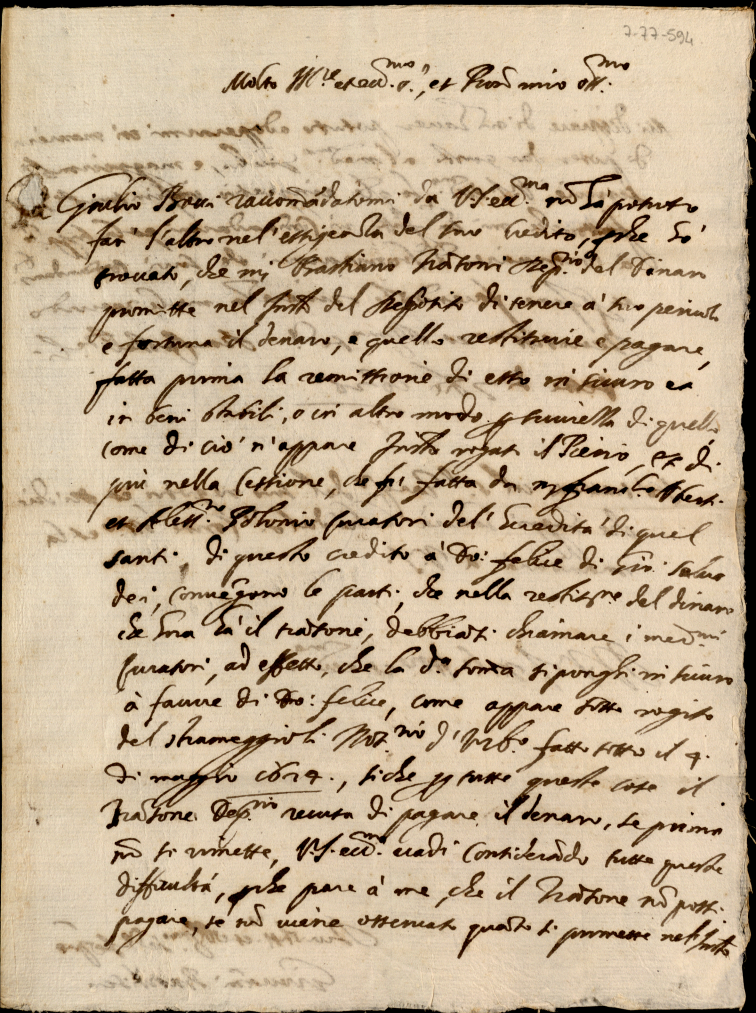 7-77-594
Molto Ill.re et ecc.mo S.r, et Pron mio oss.mo
Giulio Bossi raccomãdatomi da V.S. ecc.ma nõ hà potuto
far' l'altro nel'essigenza del suo credito, perche hò
trovato, che m.r Bastiano Trãtoni dep.rio del Denaro
promette nel Instr.o del deposito di tenere à suo pericolo
e fortuna il denaro, e quello restituire e pagare,
fatta prima la remissione di esso in sicuro ea
in beni stabili, o in altro modo p sicurezza di quello
come di ciò n'appare Instr.o rogato il Pierio, et di
più nella Cessione, che fù fatta da
et Aless.ro Polonio Curatori del' heredità di quel
santi, di questo credito à Do: felice di Gio:
dei, convẽgono le parti, che nella restit.ne del dinaro
che hora hà il trãtone, debbiati chiamare i med.mi
Curatori, ad effetto, che la d.a somma si ponghi in sicuro
à favore di Do: felice, come appare sotto rogito
del Not.rio d'Urb.o fatto sotto il 4.
di maggio 1624., siche p tutte queste cose il
Trãtone Dep.rio recusa di pagare il denaro, se prima
nõ si rimette, V.S. ecc.ma vadi considerãdo tutte queste
difficultà, perche pare à me, che il Trãtone nõ possi
pagare, se nõ viene osservato quãto si promette nel Instr.o